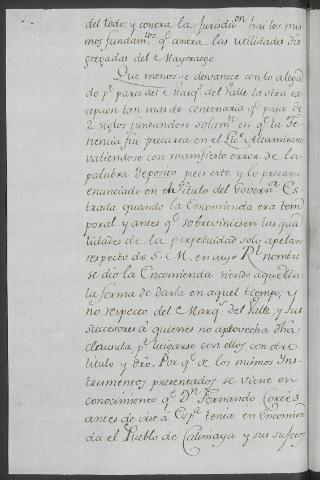 del todo; y contra la Jurisdi.on hai los mis
mos fundam.tos q.e contra las utilidades dis
gregadas del Mayorazgo
Que menos se desvanece con lo alega
do p.r parte del Marq.s del Valle la otra ex
cepcion tan mas de centenaria q.e pasa de
2. siglos fundandose solam.te en q.e la Te
nencia fue precaria en el Lic.o Altamirano
valiendose con manifiesto error de la
palabra deposito pues este y lo precario
enunciado en el Titulo del Govern.or Es
trada quando la Encomienda era tem
poral y antes q.e sobreviniesen las qua
lidades de la perpetuidad solo apelan
respecto de S. M. en cuyo R.l nombre
se dio la Encomienda siendo aquella
la forma de darla en aquel tiempo, y
no respecto del Marq.s del Valle, y sus
Successores à quienes no aprovecha dha
clausula p.r litigarse con ellos con otro
titulo y dro. Por q.e de los mismos Ins
trumentos presentados se viene en
conocimiento q.e D.n Fernando Cortès
antes de irse à Esp.a tenia en Encomien
da el Pueblo de Calimaya y sus sujetos